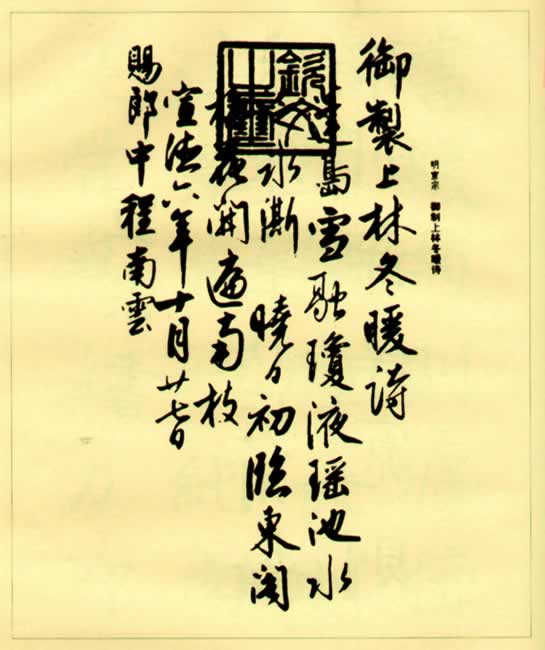 明宣宗 御制上林冬暖诗
御製上林冬暖詩
蓬島雪融瓊液瑶池水
冰澌 曉日初臨東閣
梅花開遍南枝
宣德六年十月廿七日
賜郎中程南雲
欽文之璽